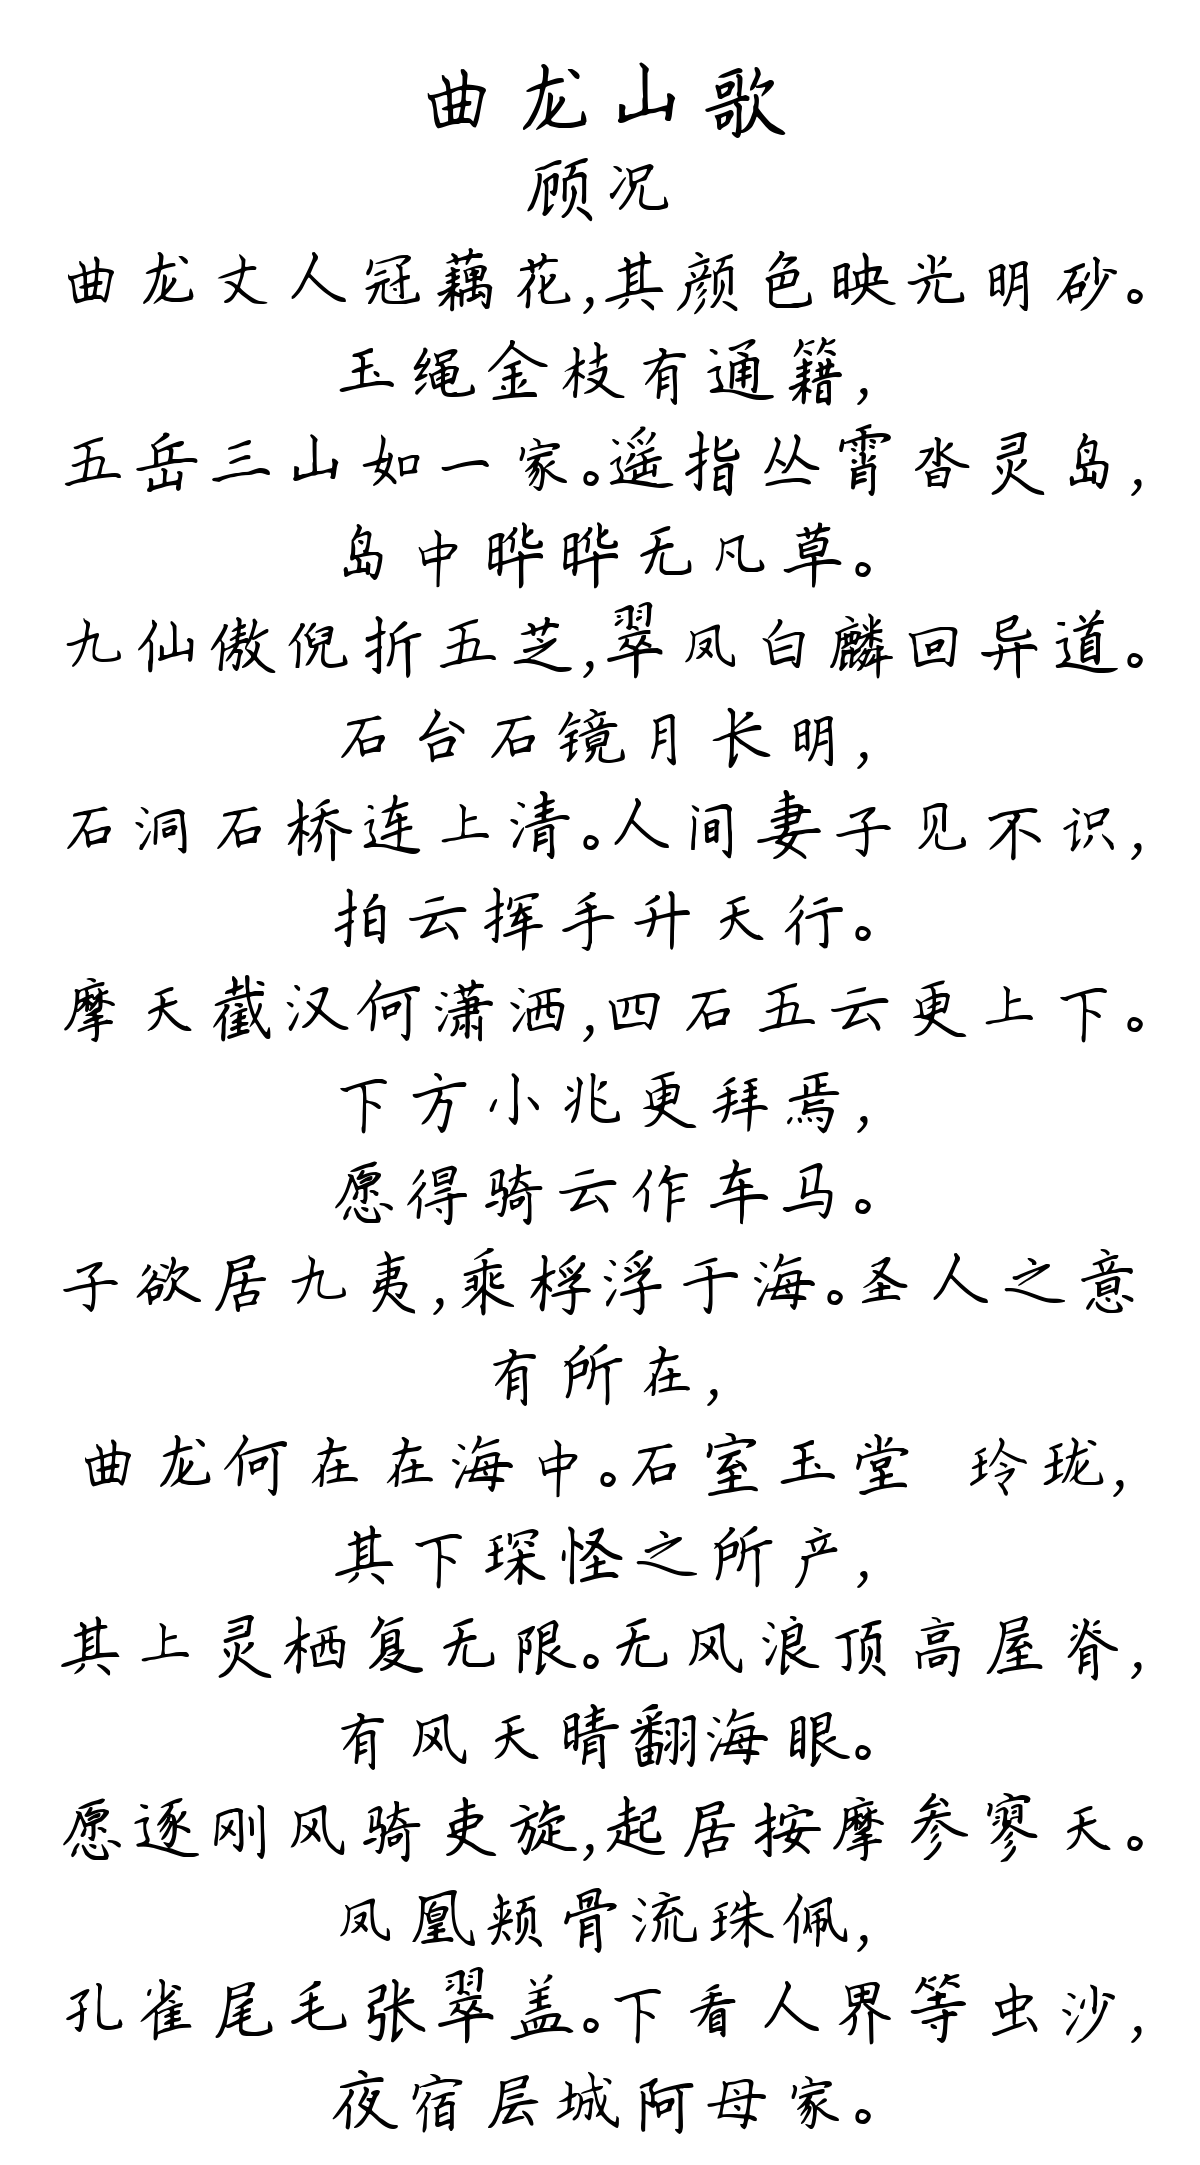 曲龙山歌
顾况
曲龙丈人冠藕花,其颜色映光明砂。
玉绳金枝有通籍,
五岳三山如一家。遥指丛霄沓灵岛,
岛中晔晔无凡草。
九仙傲倪折五芝,翠凤白麟回异道。
石台石镜月长明,
石洞石桥连上清。人间妻子见不识,
拍云挥手升天行。
摩天截汉何潇洒,四石五云更上下。
下方小兆更拜焉,
愿得骑云作车马。
子欲居九夷,乘桴浮于海。圣人之意
有所在,
曲龙何在在海中。石室玉堂 玲珑,
其下琛怪之所产,
其上灵栖复无限。无风浪顶高屋脊,
有风天晴翻海眼。
愿逐刚风骑吏旋,起居按摩参寥天。
凤凰颊骨流珠佩,
孔雀尾毛张翠盖。下看人界等虫沙,
夜宿层城阿母家。